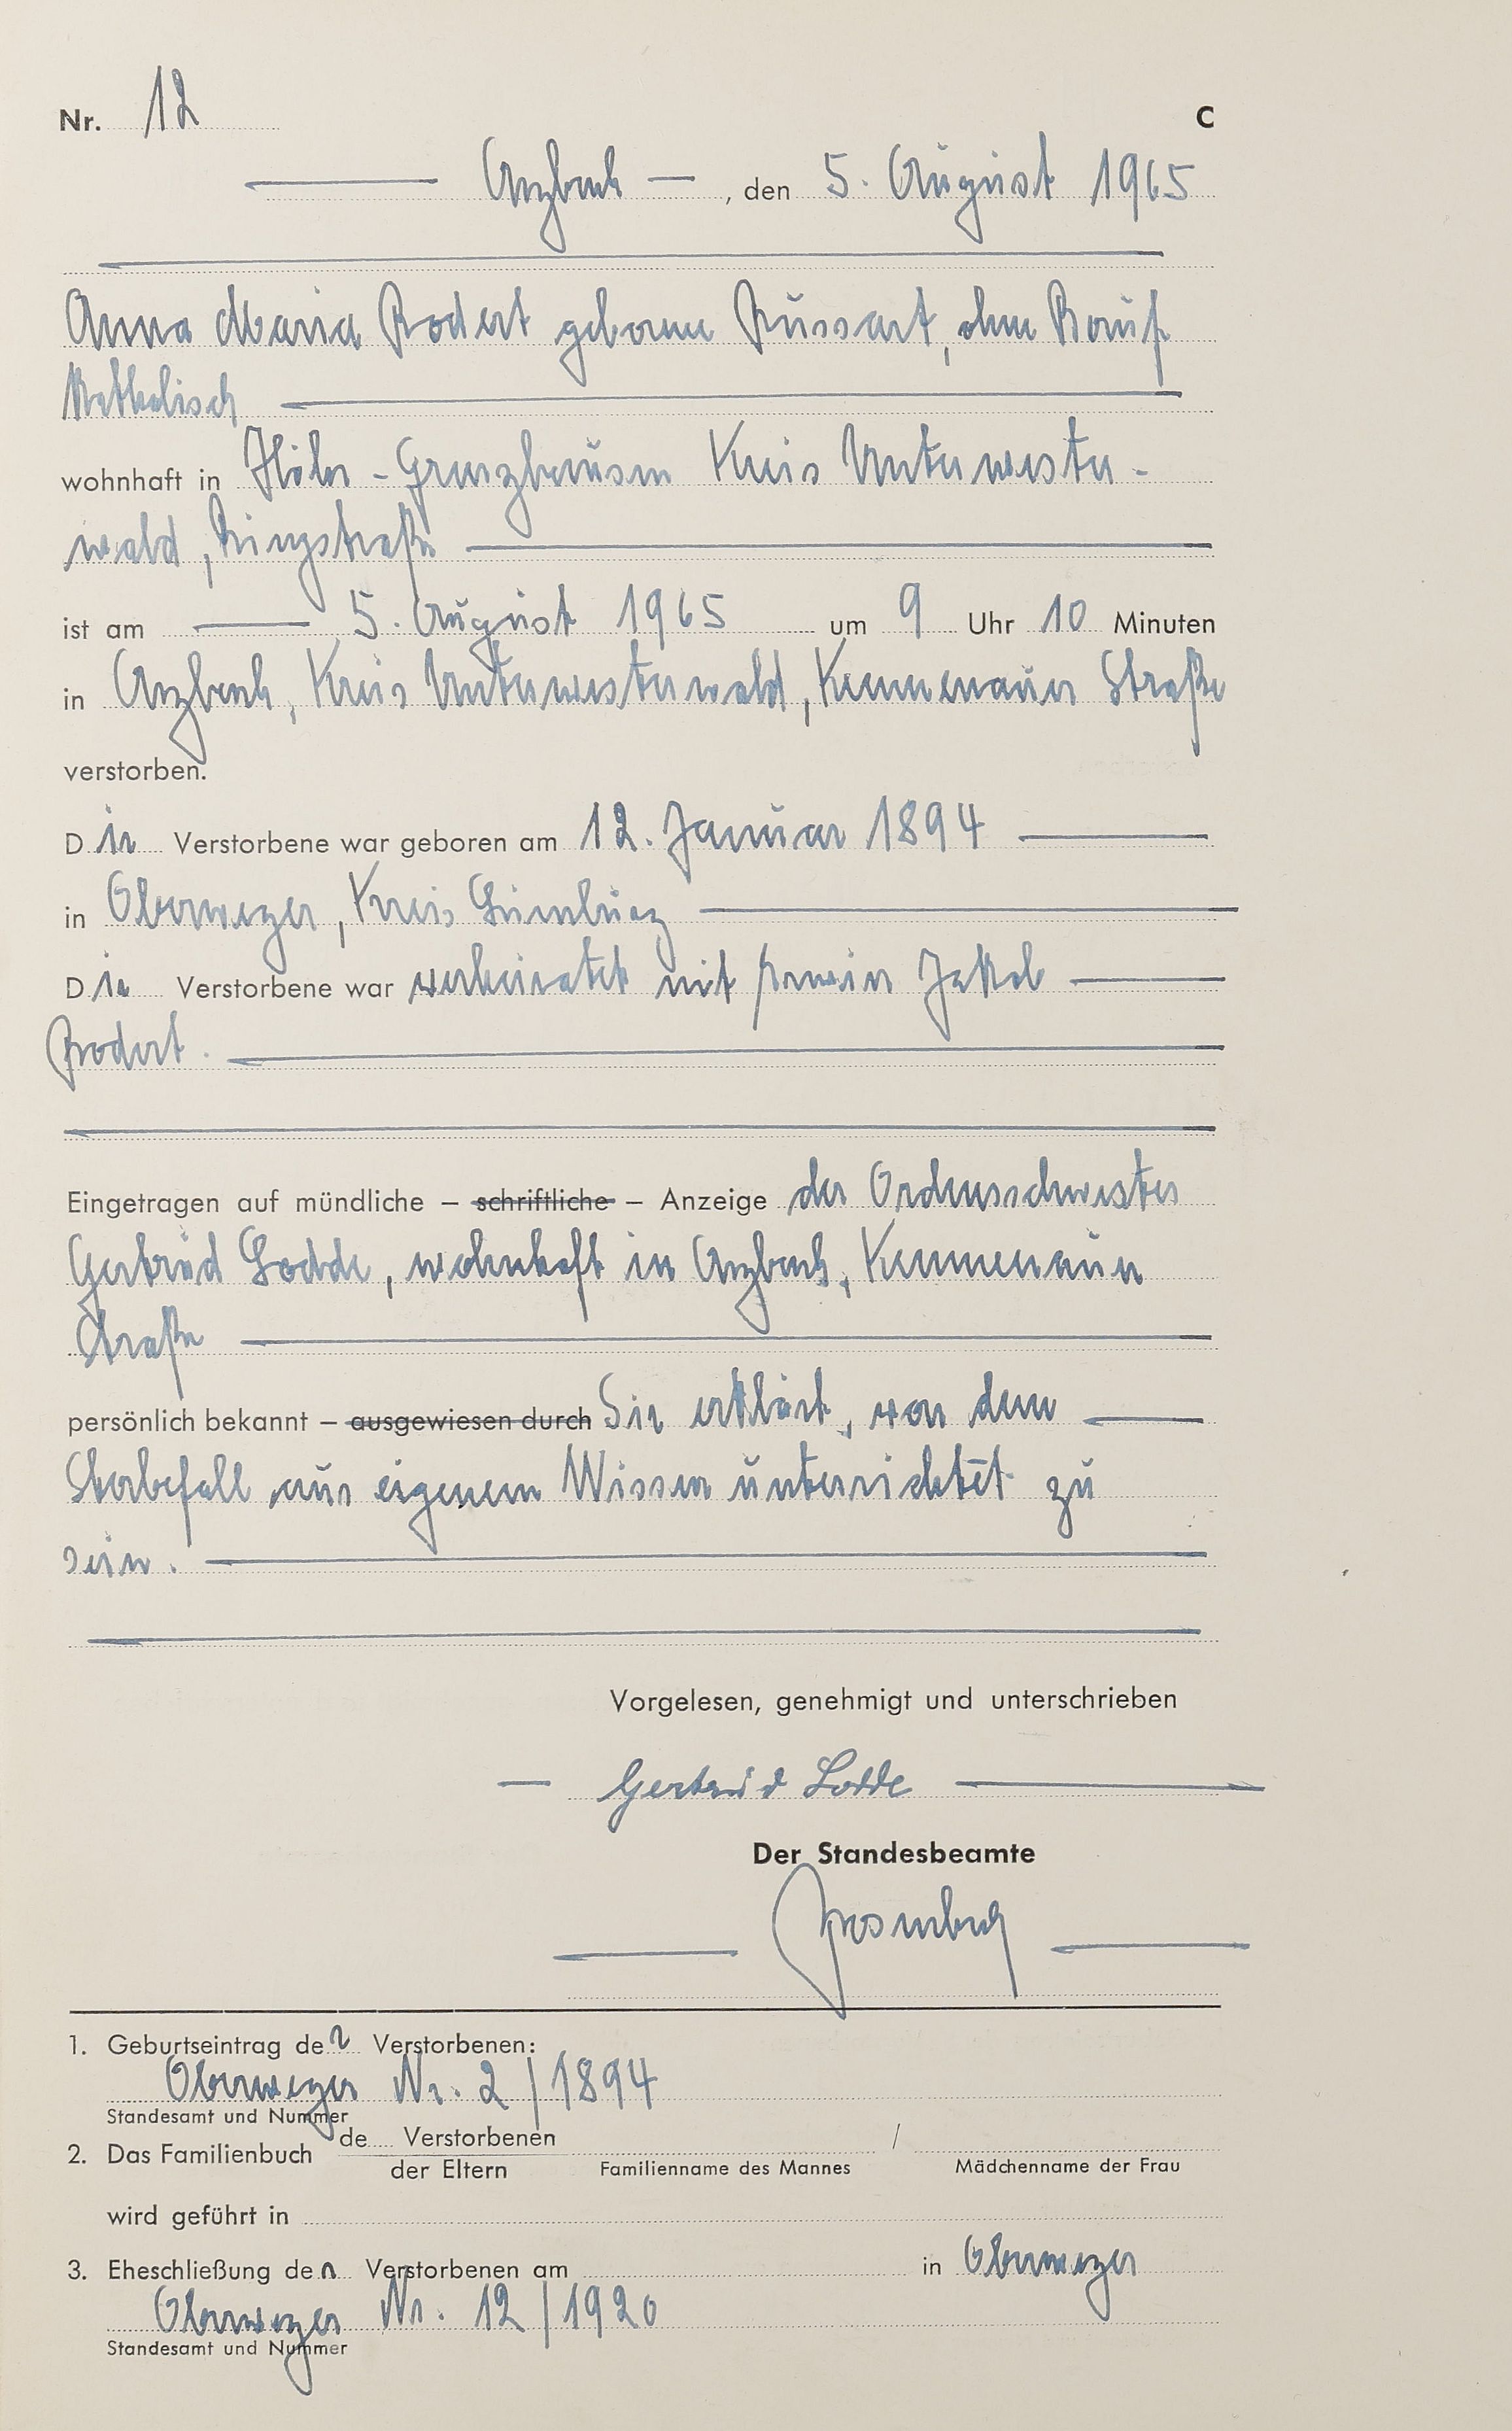 Nr. 12 C
Arzbach, den 5. August 1965
Anna Maria Brodert geborene Russart, ohne Beruf
Katholisch
wohnhaft in Höhr-Grenzhausen Kreis Unterwester-
wald, Ringstraße
ist am 5. August 1965 um 9 Uhr 10 Minuten
in Arzbach, Kreis Unterwesterwald, Kemmenauer Straße
verstorben.
Die Verstorbene war geboren am 12. Januar 1894
in Oberweyer, Kreis Limburg
Die Verstorbene war verheiratet mit Jakob
Brodert.
Eingetragen auf mündliche – schriftliche – Anzeige der Ordensschwester
Gertrud Lodde, wohnhaft in Arzbach, Kemmenauer
Straße
persönlich bekannt – ausgewiesen durch Sie erklärt, von dem
Sterbefall aus eigenem Wissen unterrichtet zu
sein.
Vorgelesen, genehmigt und unterschrieben
Gertrud Lodde
Der Standesbeamte
1. Geburtseintrag der Verstorbenen:
Oberweyer Nr. 2/1894
Standesamt und Nummer
2. Das Familienbuch de Verstorbenen /
der Eltern Familienname des Mannes Mädchenname der Frau
wird geführt in
3. Eheschließung der Verstorbenen am in Oberweyer
Oberweyer Nr. 12/1920
Standesamt und Nummer